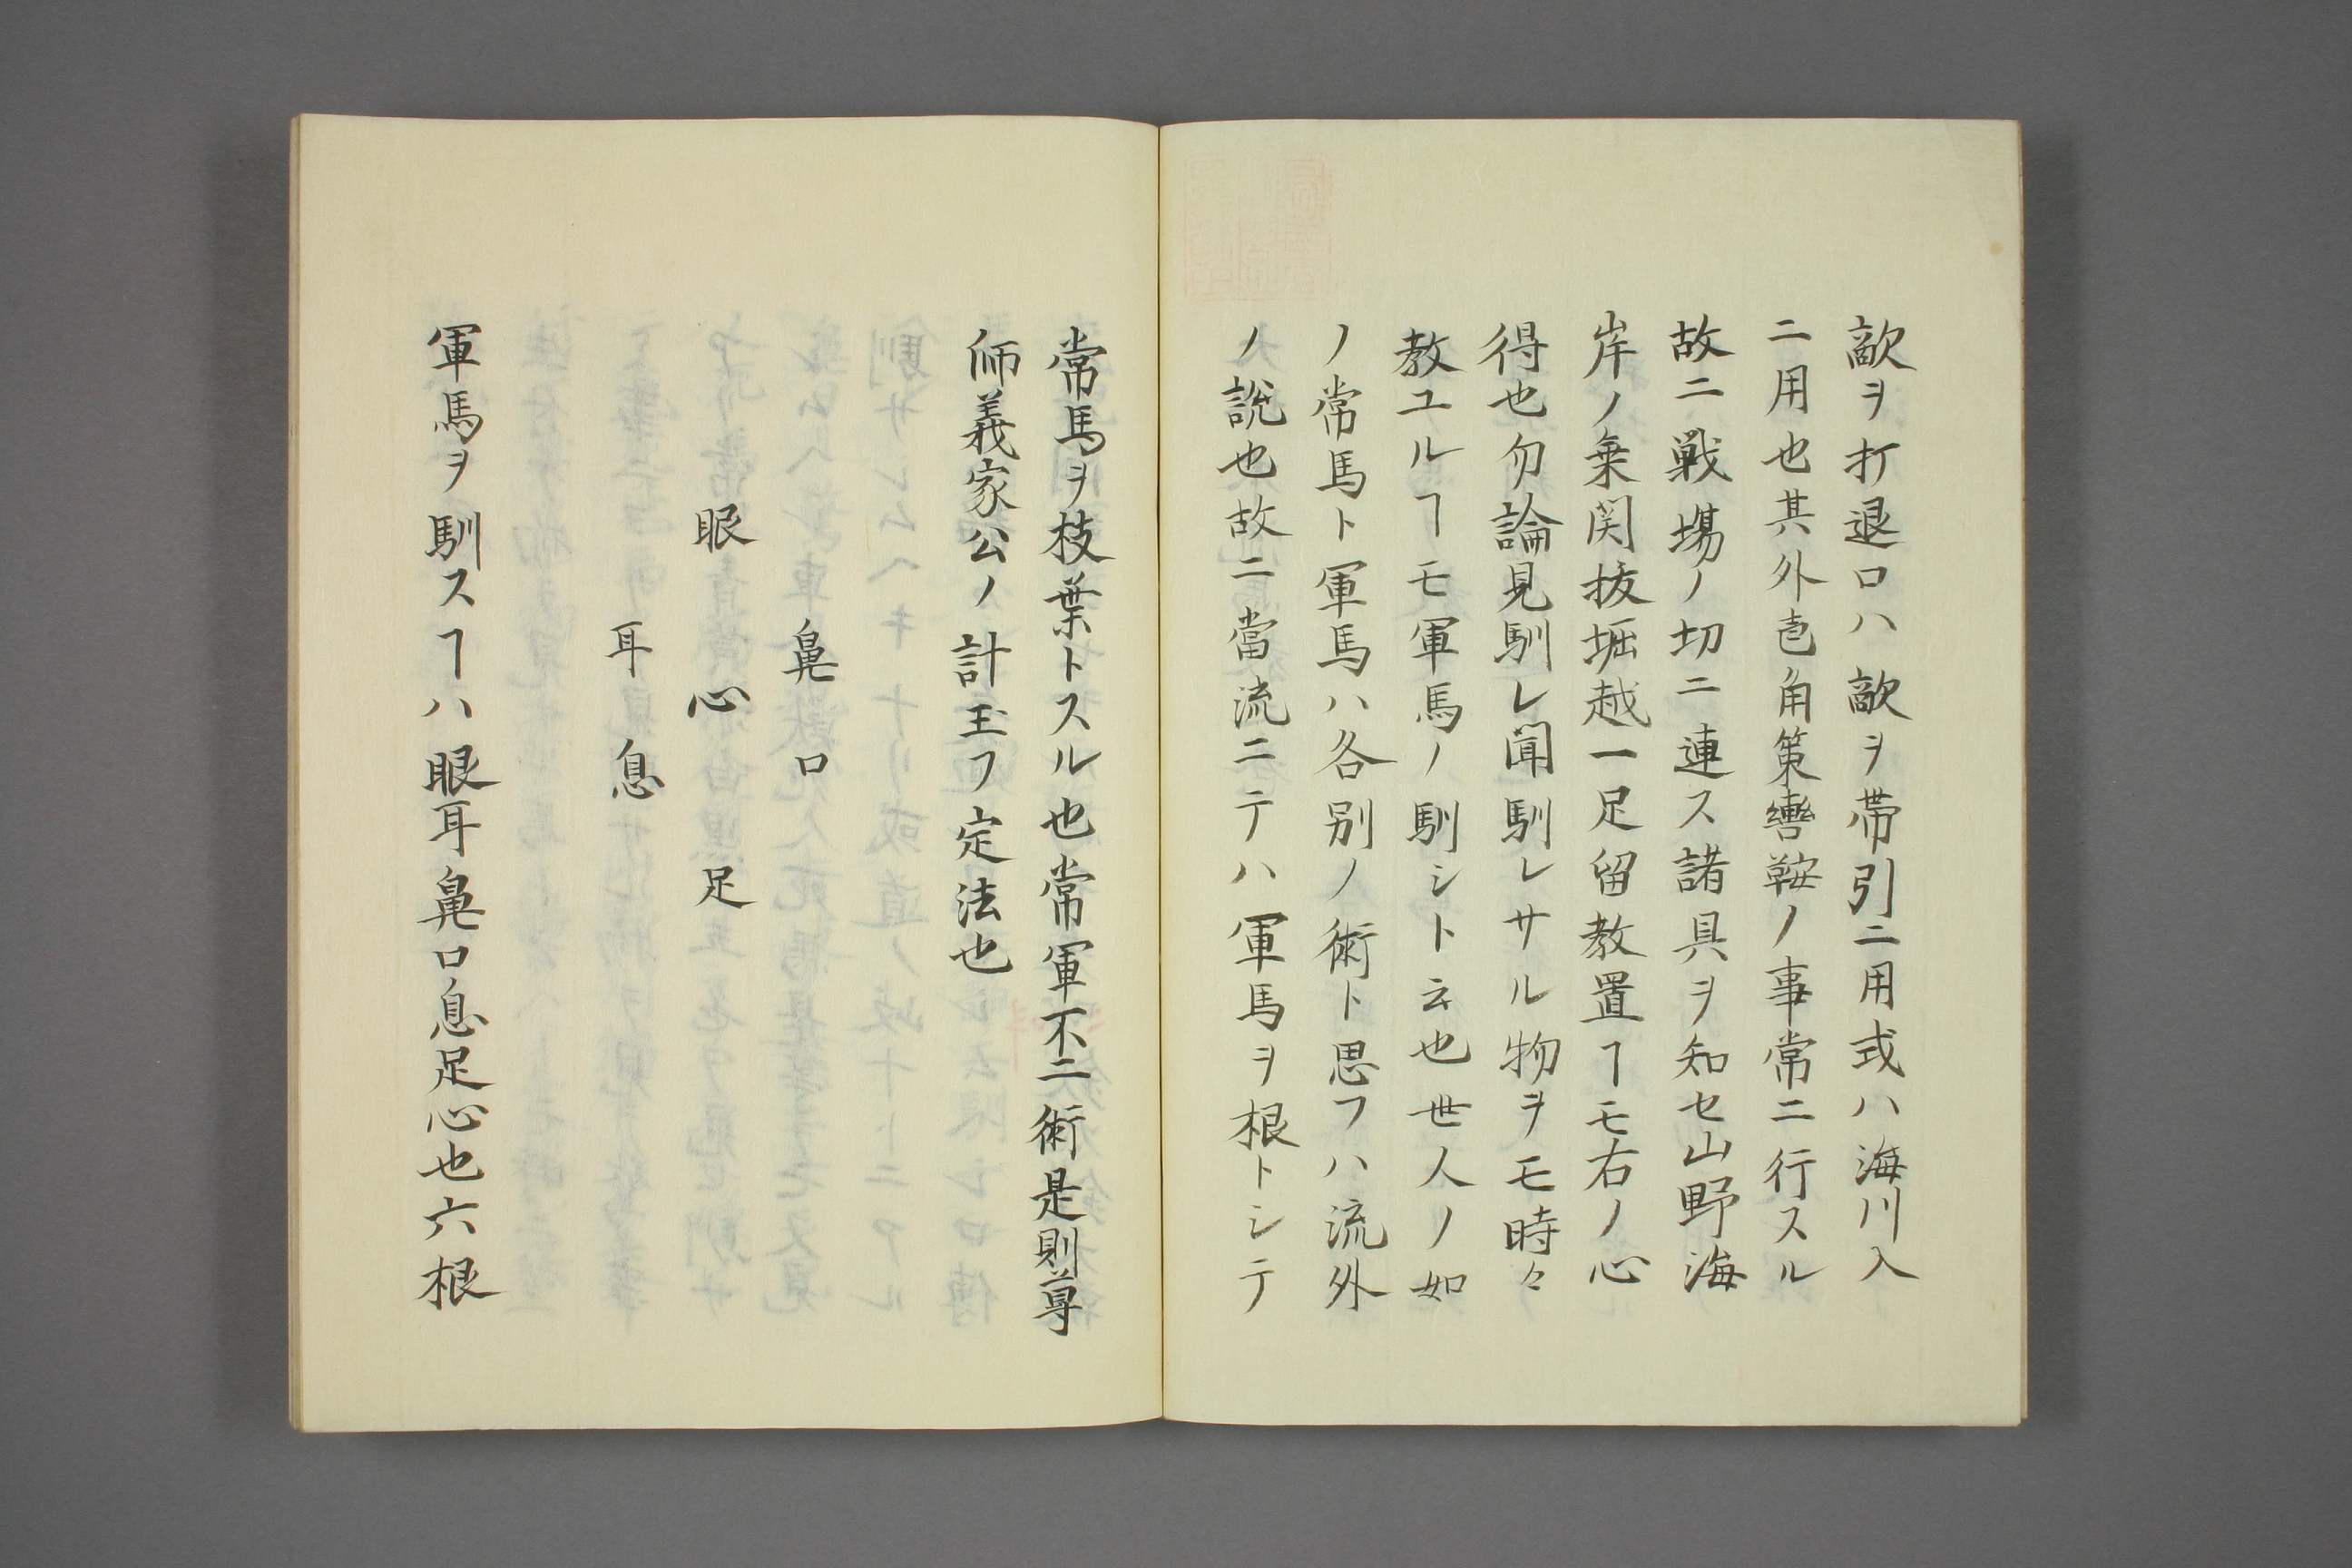 敵ヲ打退口ハ敵ヲ帯引ニ用或ハ海川入
ニ用也其外皀角策轡鞍ノ事常ニ行スル
故ニ戦場ノ切ニ連ス諸具ヲ知セ山野海
岸ノ乗関抜堀越一足留教置ヿモ右ノ心
得也勿論見馴レ聞馴レサル物ヲモ時々
教ユルヿモ軍馬ノ馴シト云也世人ノ如
ノ常馬ト軍馬ハ各別ノ術ト思フハ流外
ノ説也故ニ當流ニテハ軍馬ヲ根トシテ
常馬ヲ枝葉トスル也常軍不二術是則尊
師義家公ノ計玉フ定法也
鼻口
眼心足
耳息
軍馬ヲ馴スヿハ眼耳鼻口息足心也六根